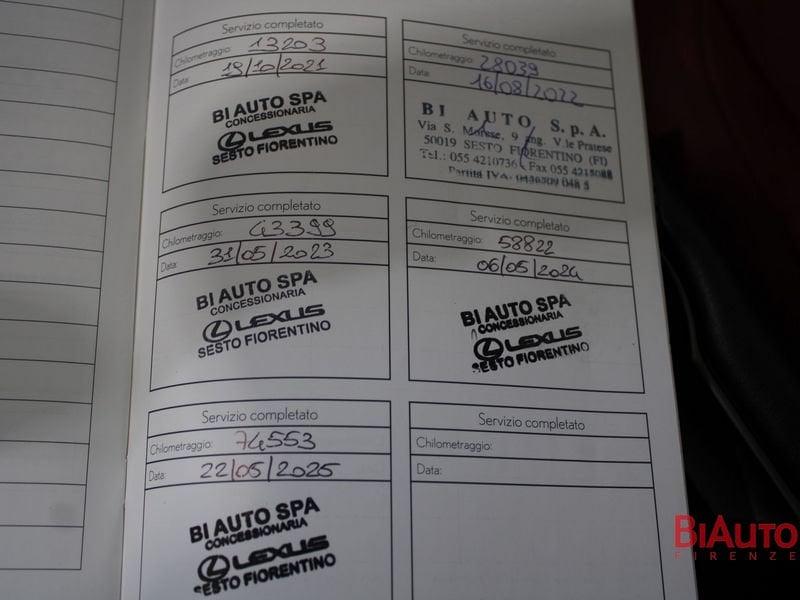 Servizio completato
Chilometraggio: 13203
Data: 19/10/2021
BI AUTO SPA
CONCESSIONARIA
LEXUS
SESTO FIORENTINO
Servizio completato
Chilometraggio: 28039
Data: 16/08/2022
BI AUTO S.p.A.
Via S. Morese, 9 ang. V.le Pratese
50019 SESTO FIORENTINO (FI)
Tel.: 055 4210736 Fax 055 4215088
Partita IVA:
Servizio completato
Chilometraggio: 43399
Data: 31/05/2023
BI AUTO SPA
CONCESSIONARIA
LEXUS
SESTO FIORENTINO
Servizio completato
Chilometraggio: 58822
Data: 06/05/2024
BI AUTO SPA
CONCESSIONARIA
LEXUS
SESTO FIORENTINO
Servizio completato
Chilometraggio: 74553
Data: 22/05/2025
BI AUTO SPA
CONCESSIONARIA
LEXUS
SESTO FIORENTINO
Servizio completato
Chilometraggio:
Data:
BIAUTO
FIRENZE